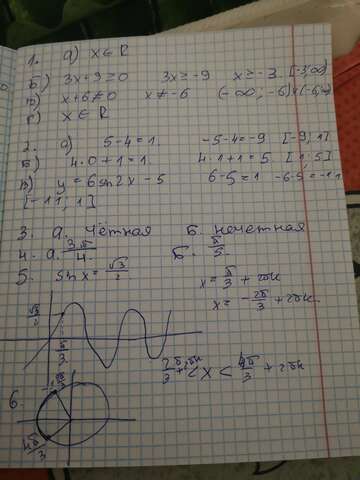 1. а) x ∈ R
б) 3x+9≥0 3x≥-9 x≥-3 [-3;∞)
в) x+6≠0 x≠-6 (-∞;-6)
г) x ∈ R
2. а) 5-4=1 -5-4=-9 [-9;1]
б) 4·0+1=1 4·1+1=5 [1;5]
в) y=6sin2x-5 6-5=1 -6-5=-11
[-11;1]
3. а. чётная б. нечетная
4. а. 3π/4 б. π/5
5. sinx=√3/2 x=π/3+2πk
x=-2π/3+2πk
√3/2
π/3
2π/3+2πk<x<4π/3+2πk
6.
4π/3